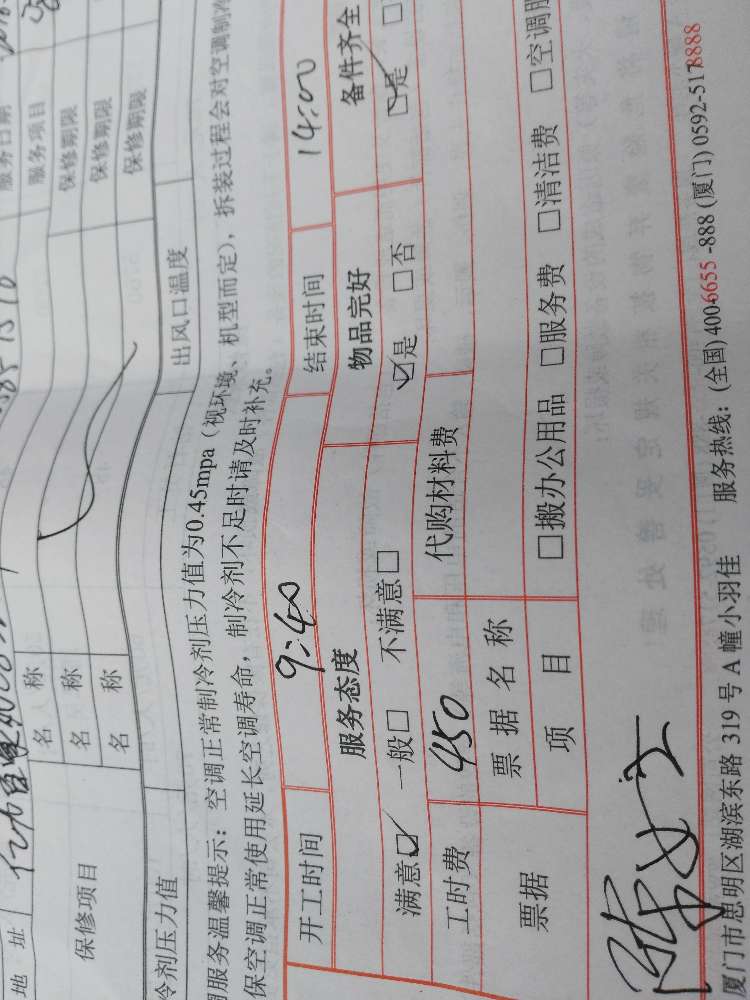 服务日期
地 址
保修项目 名 称 服务项目
名 称 保修期限
名 称 保修期限
保修期限
冷剂压力值 出风口温度
服务温馨提示：空调正常制冷剂压力值为0.45mpa（视环境、机型而定），拆装过程会对空调制冷
保空调正常使用延长空调寿命，制冷剂不足时请及时补充。
开工时间 9:40 结束时间 14:00
服务态度 物品完好 备件齐全
满意☑ 一般□ 不满意□ ☑是 □否 ☑是 □
工时费 450 代购材料费
票据 票据名称
项 目 □搬办公用品 □服务费 □清洁费 □空调服
陈女士
厦门市思明区湖滨东路 319 号 A 幢小羽佳 服务热线：(全国) 4006655 -888 (厦门) 0592-5178888